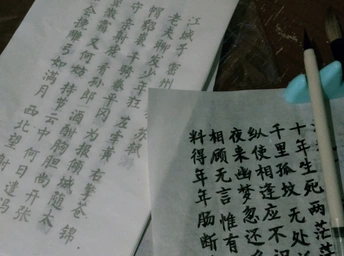 江城子 密州 苏轼
老夫聊发少年狂 左牵黄 右擎苍 锦
帽貂裘 千骑卷平冈 为报倾城随太
守 亲射虎 看孙郎 酒酣胸胆尚开张
微霜 又何妨 持节云中 何日遣冯
会挽雕弓如满月 西北望 射
十年生死两茫茫
千里孤坟 无处
纵使相逢应不识
夜来幽梦忽还
相顾无言 惟有
料得年年肠断